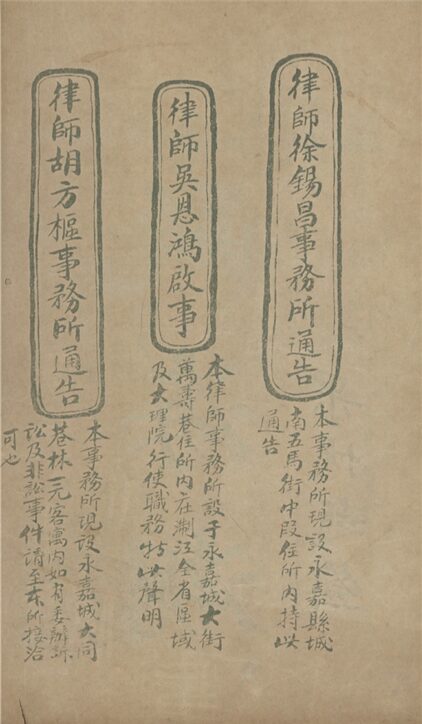 律師徐錫昌事務所通告
本事務所現設永嘉縣城
南五馬街中段住所內特此
通告
律師吳恩鴻啟事
本律師事務所設于永嘉城大街
萬壽巷住所內在浙江全省區域
及大理院行使職務特此聲明
律師胡方樞事務所通告
本事務所現設永嘉城大同
巷林一元客寓內如有委辦訴
訟及非訟事件請至本所接洽
可也